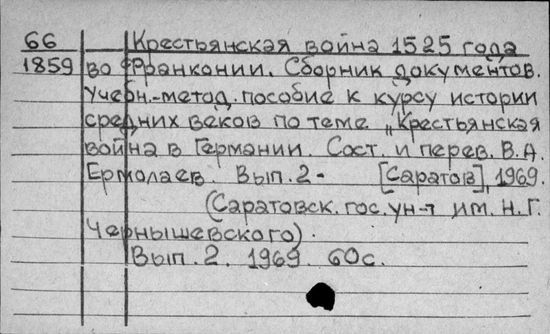 66 Крестьянская война 1525 года
1859 во Франконии. Сборник документов.
Учебн.-метод. пособие к курсу истории
средних веков по теме „Крестьянская
война в Германии. Сост. и перев. В.А.
Ермолаев. Вып.2- [Саратов], 1969.
(Саратовск. гос. ун-т им. Н.Г.
Чернышевского).
Вып. 2. 1969. 60с.